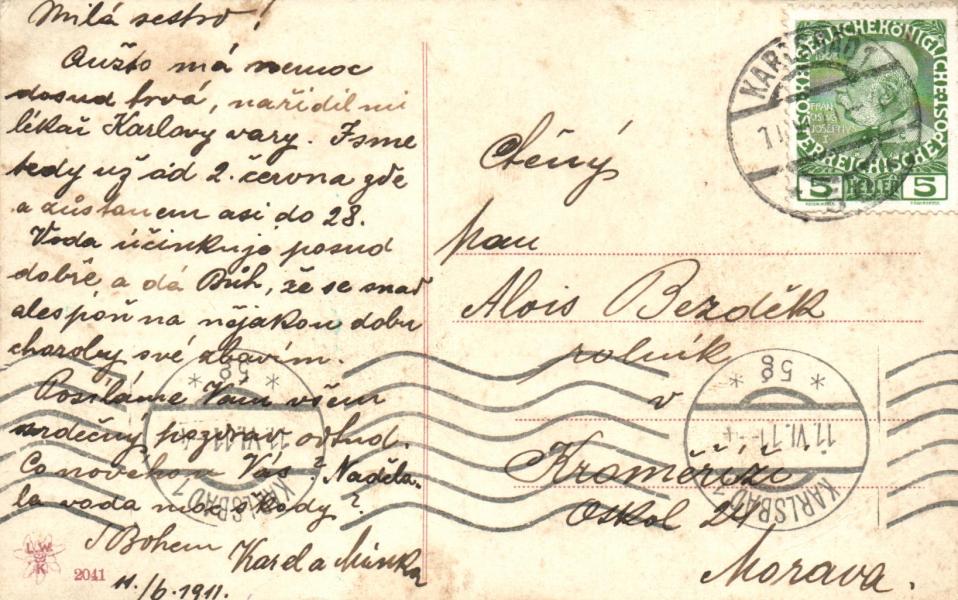 Milá sestro!
Aužto má nemoc
dosud trvá, nařídil mi
lékař Karlovy vary. Jsme
tedy už od 2. června zde
a zůstanem asi do 28.
Voda účinkuje posud
dobře a dá Bůh, že se snad
alespoň na nějakou dobu
choroby své zbavím.
Posíláme Vám všem
srdečný pozdrav odtud.
Co nového u Vás? Naděla-
la voda moc škody?
S Bohem
Karel a Minka
11./6.1911.
L.W.
K
2041
Ctěný
pan
Alois Bezděk
rolník
v
Kroměříži
Oskol 24
Morava.
KAISERLICHE KÖNIGLICHE ÖSTERREICHISCHE POST
1908
FRANCISCVS JOSEPHVS I
5 HELLER 5
KARLSBAD 7
58
11.VI.11
KARLSBAD 7
58
KARLSBAD 1